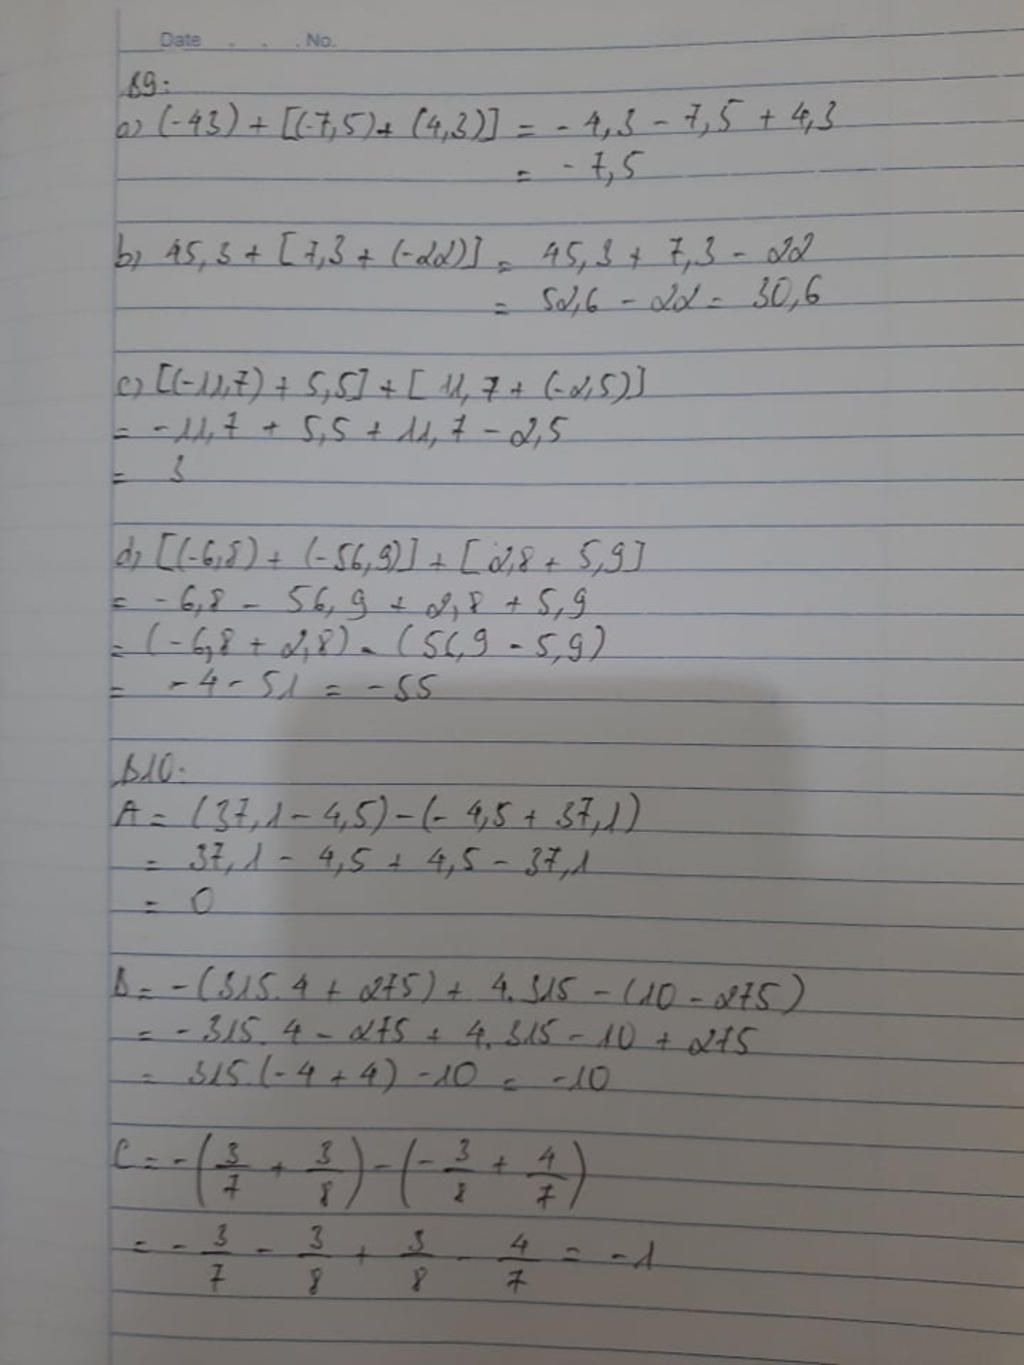 Date . . . No.
B9:
a) (-43) + [(-7,5) + (4,3)] = - 4,3 - 7,5 + 4,3
= - 7,5
b) 45,3 + [7,3 + (-22)] = 45,3 + 7,3 - 22
= 52,6 - 22 = 30,6
c) [(-11,7) + 5,5] + [11,7 + (-2,5)]
= -11,7 + 5,5 + 11,7 - 2,5
= 3
d) [(-6,8) + (-56,9)] + [2,8 + 5,9]
= -6,8 - 56,9 + 2,8 + 5,9
= (-6,8 + 2,8) - (56,9 - 5,9)
= -4 - 51 = -55
B10:
A = (37,1 - 4,5) - (- 4,5 + 37,1)
= 37,1 - 4,5 + 4,5 - 37,1
= 0
B = -(315.4 + 275) + 4.315 - (10 - 275)
= -315.4 - 275 + 4.315 - 10 + 275
= 315.(-4 + 4) - 10 = -10
C = -(3/7 + 3/8) - (-3/8 + 4/7)
= - 3/7 - 3/8 + 3/8 - 4/7 = -1